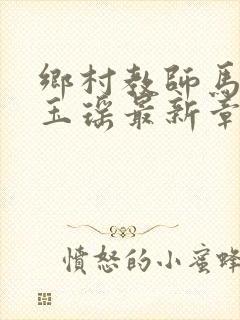 鄉村教師馬
玉瑤最新章
憤怒的小蜜蜂